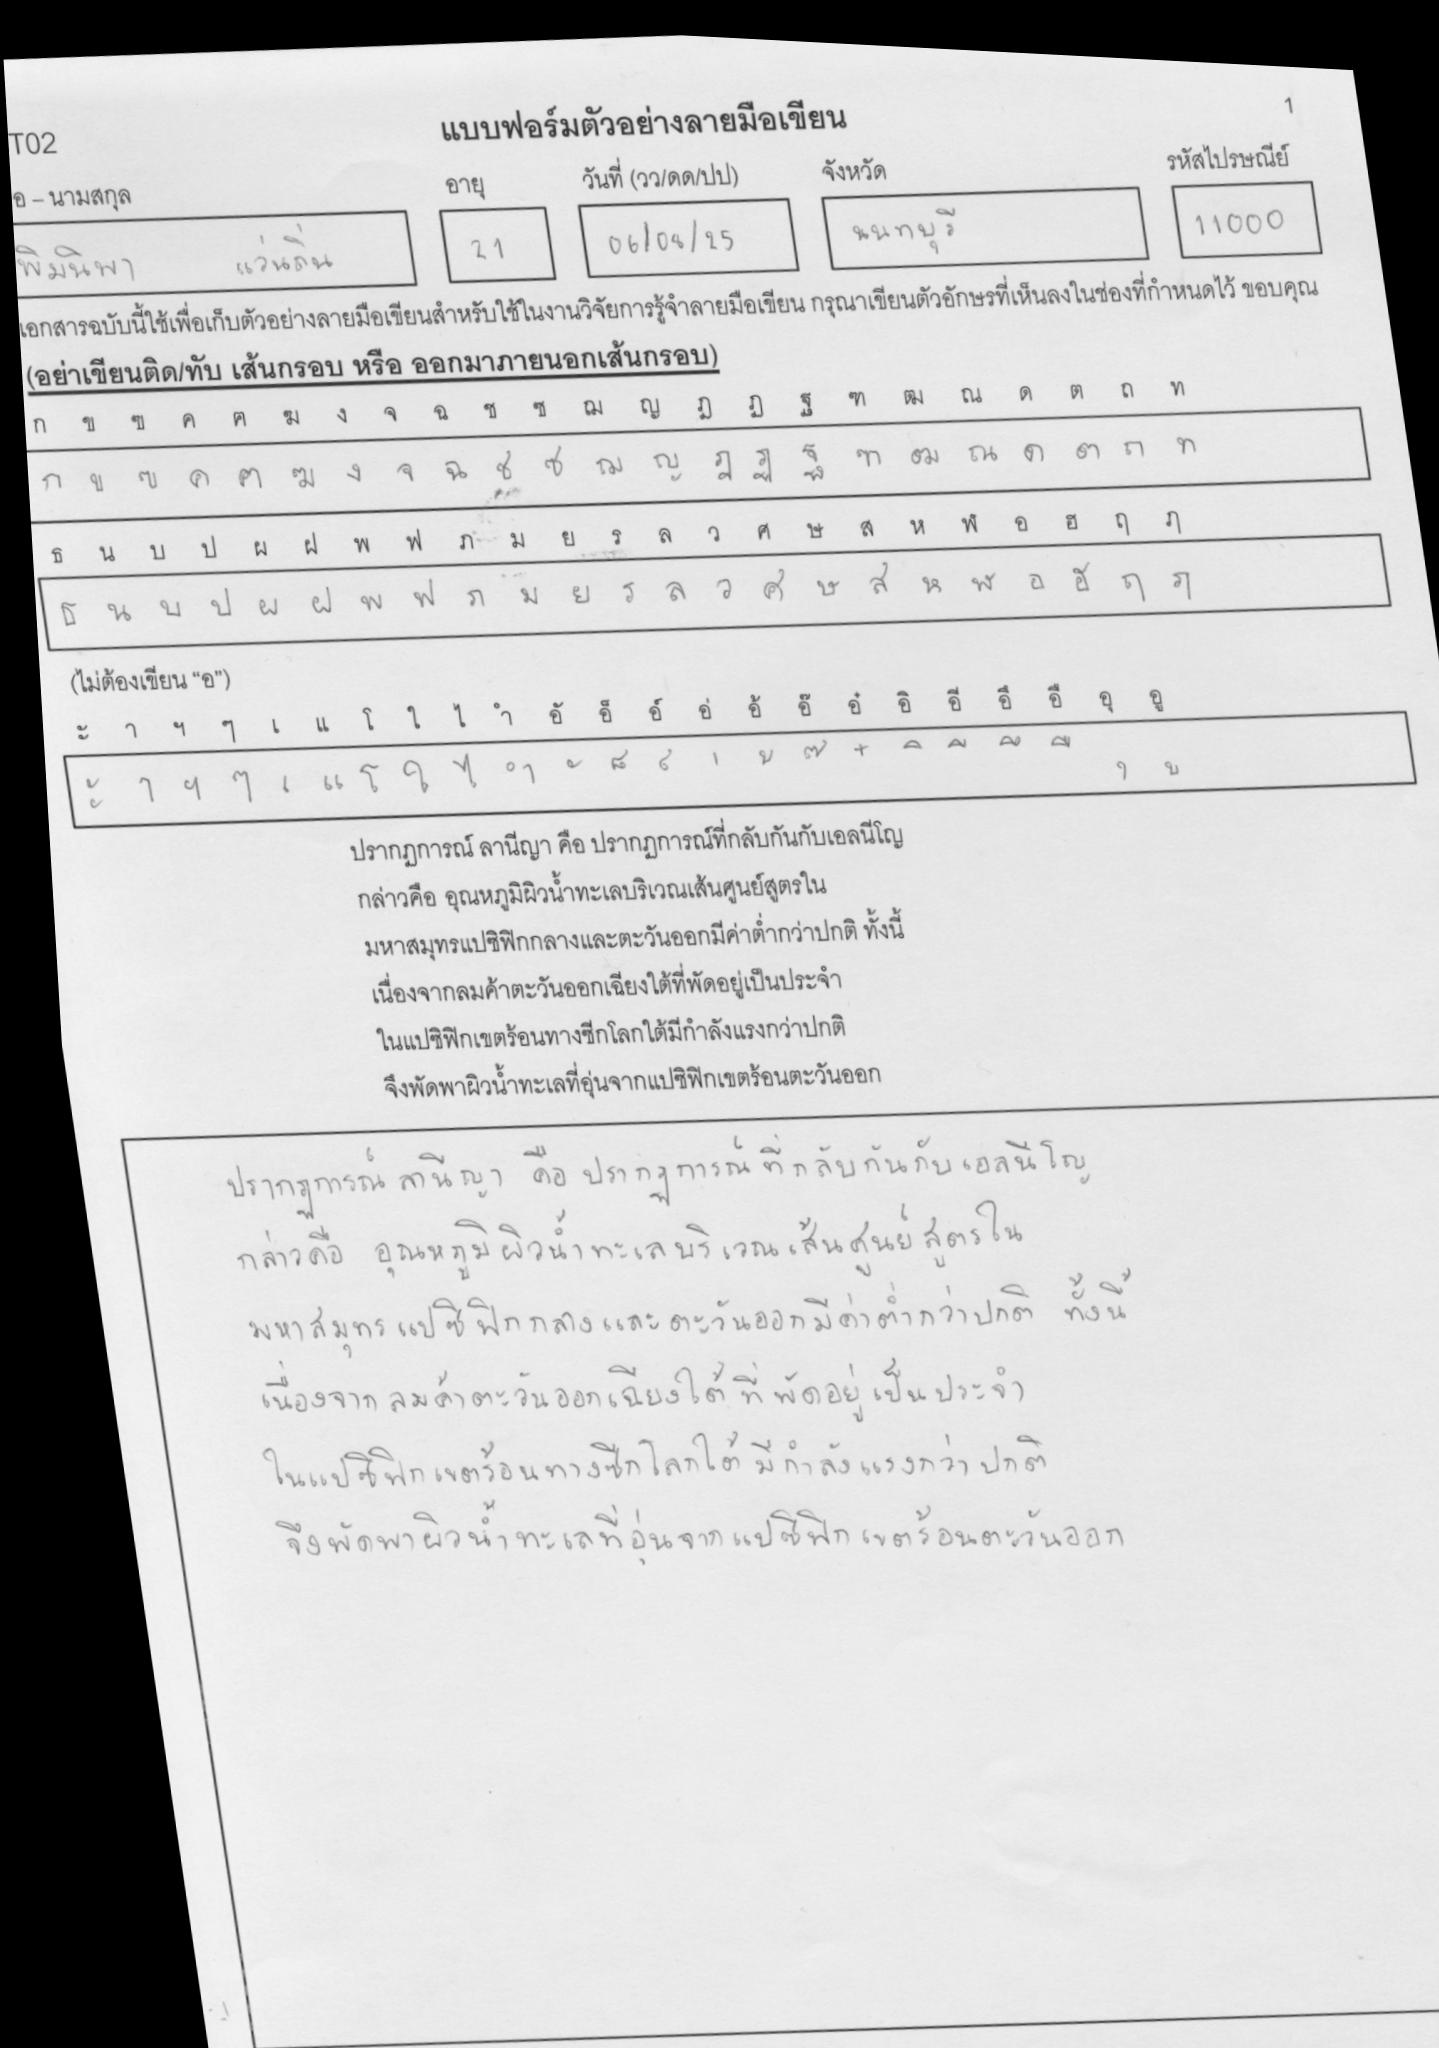 T02
แบบฟอร์มตัวอย่างลายมือเขียน
1
อ – นามสกุล
อายุ
วันที่ (วว/ดด/ปป)
จังหวัด
รหัสไปรษณีย์
พิมนิพา แว่นถิ่น
21
06/04/25
นนทบุรี
11000
เอกสารฉบับนี้ใช้เพื่อเก็บตัวอย่างลายมือเขียนสำหรับใช้ในงานวิจัยการรู้จำลายมือเขียน กรุณาเขียนตัวอักษรที่เห็นลงในช่องที่กำหนดไว้ ขอบคุณ
(อย่าเขียนติด/ทับ เส้นกรอบ หรือ ออกมาภายนอกเส้นกรอบ)
ก ข ฃ ค ฅ ฆ ง จ ฉ ช ซ ฌ ญ ฎ ฏ ฐ ฑ ฒ ณ ด ต ถ ท
ก ข ฃ ค ฅ ฆ ง จ ฉ ช ซ ฌ ญ ฎ ฏ ฐ ฑ ฒ ณ ด ต ถ ท
ธ น บ ป ผ ฝ พ ฟ ภ ม ย ร ล ว ศ ษ ส ห ฬ อ ฮ ฤ ฦ
ธ น บ ป ผ ฝ พ ฟ ภ ม ย ร ล ว ศ ษ ส ห ฬ อ ฮ ฤ ฦ
(ไม่ต้องเขียน “อ”)
ะ า ฯ ๆ เ แ โ ใ ไ ำ อั อ็ อ์ อ่ อ้ อ๊ อ๋ อิ อี อึ อื อุ อู
ะ า ฯ ๆ เ แ โ ใ ไ ำ ั ็ ์ ่ ้ ๊ ๋ ิ ี ึ ื ุ ู
ปรากฏการณ์ ลานีญา คือ ปรากฏการณ์ที่กลับกันกับเอลนีโญ
กล่าวคือ อุณหภูมิผิวน้ำทะเลบริเวณเส้นศูนย์สูตรใน
มหาสมุทรแปซิฟิกกลางและตะวันออกมีค่าต่ำกว่าปกติ ทั้งนี้
เนื่องจากลมค้าตะวันออกเฉียงใต้ที่พัดอยู่เป็นประจำ
ในแปซิฟิกเขตร้อนทางซีกโลกใต้มีกำลังแรงกว่าปกติ
จึงพัดพาผิวน้ำทะเลที่อุ่นจากแปซิฟิกเขตร้อนตะวันออก
ปรากฏการณ์ ลานีญา คือ ปรากฏการณ์ ที่กลับกันกับเอลนีโญ
กล่าวคือ อุณหภูมิผิวน้ำทะเลบริเวณเส้นศูนย์สูตรใน
มหาสมุทรแปซิฟิกกลางและตะวันออกมีค่าต่ำกว่าปกติ ทั้งนี้
เนื่องจากลมค้าตะวันออกเฉียงใต้ที่พัดอยู่เป็นประจำ
ในแปซิฟิกเขตร้อนทางซีกโลกใต้มีกำลังแรงกว่าปกติ
จึงพัดพาผิวน้ำทะเลที่อุ่นจากแปซิฟิกเขตร้อนตะวันออก